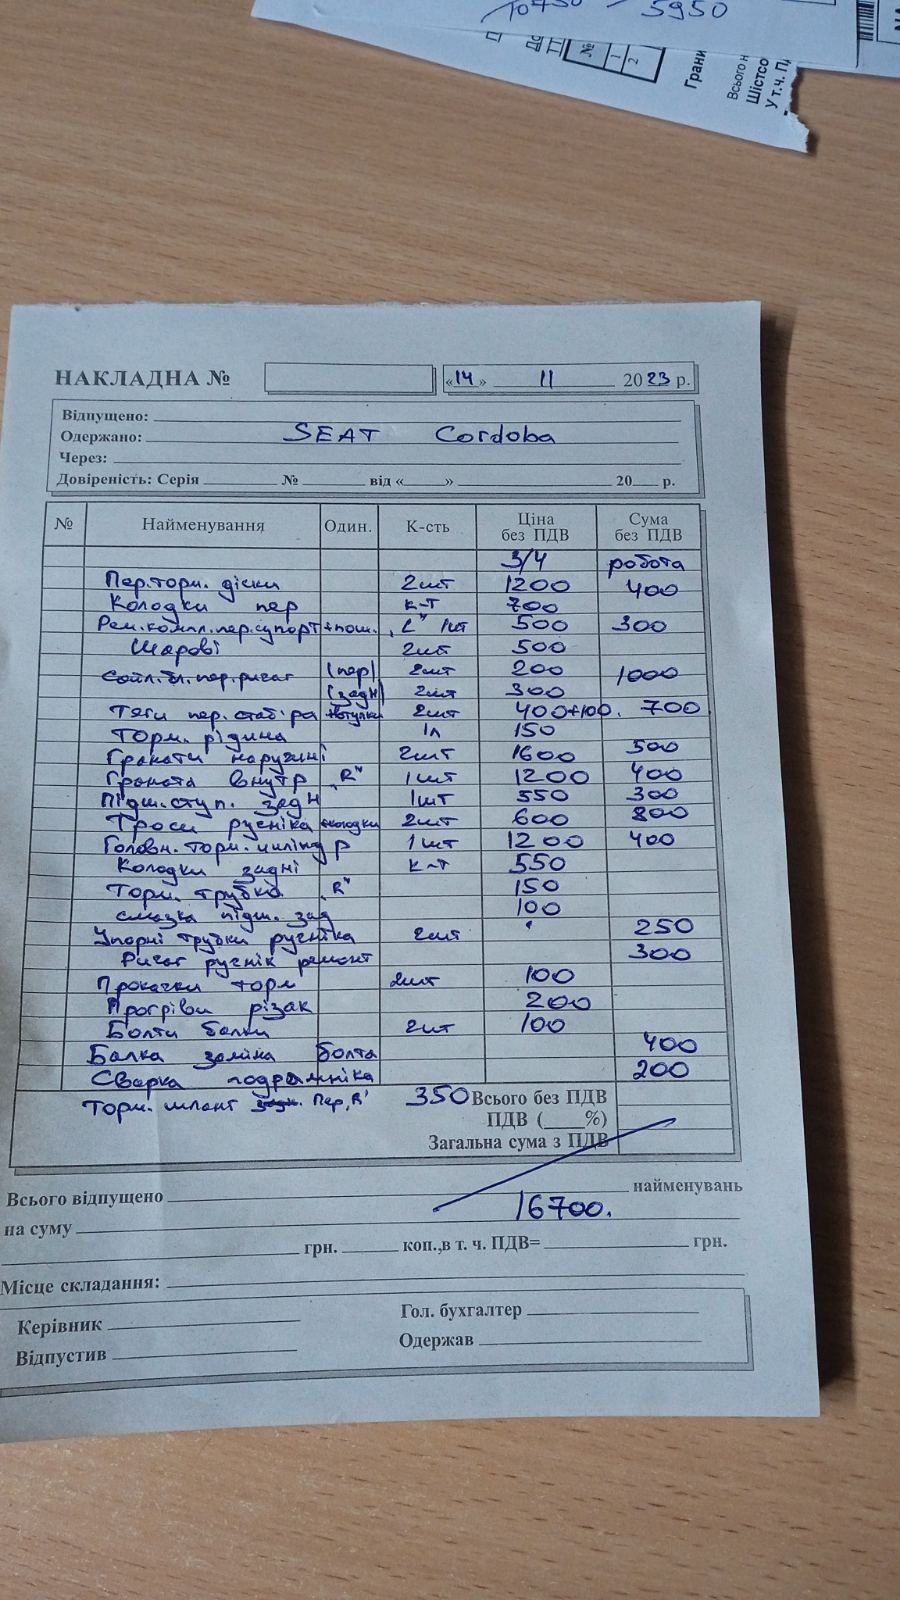 10750 5950
№
1
2
Грани
Всього н
Шістсо
У т.ч. П
НАКЛАДНА № «14» 11 2023 р.
Відпущено:
Одержано: SEAT Cordoba
Через:
Довіреність: Серія № від « » 20 р.
№ Найменування Один. К-сть Ціна без ПДВ Сума без ПДВ
З/Ч робота
Пер.торм. діски 2шт 1200 400
Колодки пер к-т 700
Рем.компл.пер.супорт +пош. "L" 1шт 500 300
Шарові 2шт 500
Сайл.бл.пер.ричаг (пер) 2шт 200 1000
(задн) 2шт 300
Тяги пер.стаб-ра +втулки 2шт 400+100. 700
Торм. рідина 1л 150
Гранати наружні 2шт 1600 500
Граната внутр "R" 1шт 1200 400
Підш.ступ. задн 1шт 550 300
Троси ручніка +колодки 2шт 600 800
Головн. торм. циліндр 1шт 1200 400
Колодки задні к-т 550
Торм. трубка "R" 150
Смазка підш. зад 100
Упорні трубки ручніка 2шт 250
Ричаг ручнік ремонт 300
Прокачки торм 2шт 100
Прогріви різак 200
Болти балки 2шт 100
Балка заміна болта 400
Сварка подрамніка 200
Торм. шланг Пер,R' 350 Всього без ПДВ
ПДВ (____%)
Загальна сума з ПДВ
Всього відпущено найменувань
на суму 16700.
грн. коп.,в т. ч. ПДВ= грн.
Місце складання:
Керівник Гол. бухгалтер
Відпустив Одержав